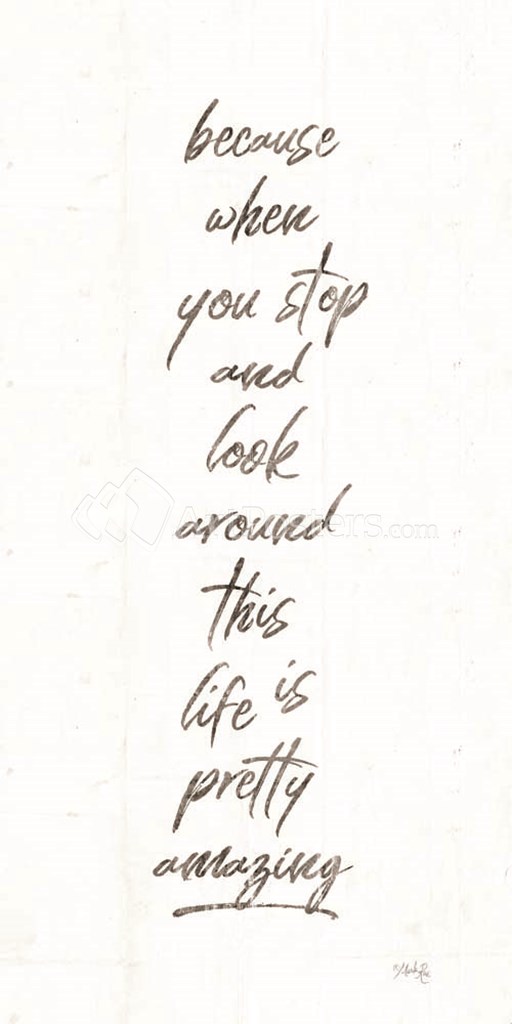 because
when
you stop
and
look
around
this
life is
pretty
amazing
ArtPosters.com